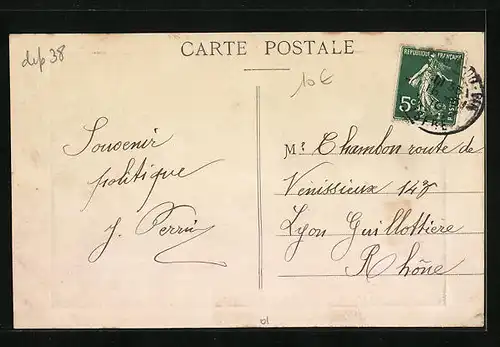 dep 38
CARTE POSTALE
10€
REPUBLIQUE FRANÇAISE
5c
POSTES
Souvenir
politique
J. Perrin
Mr Chambon route de
Venissieux 147
Lyon Guillottière
Rhône